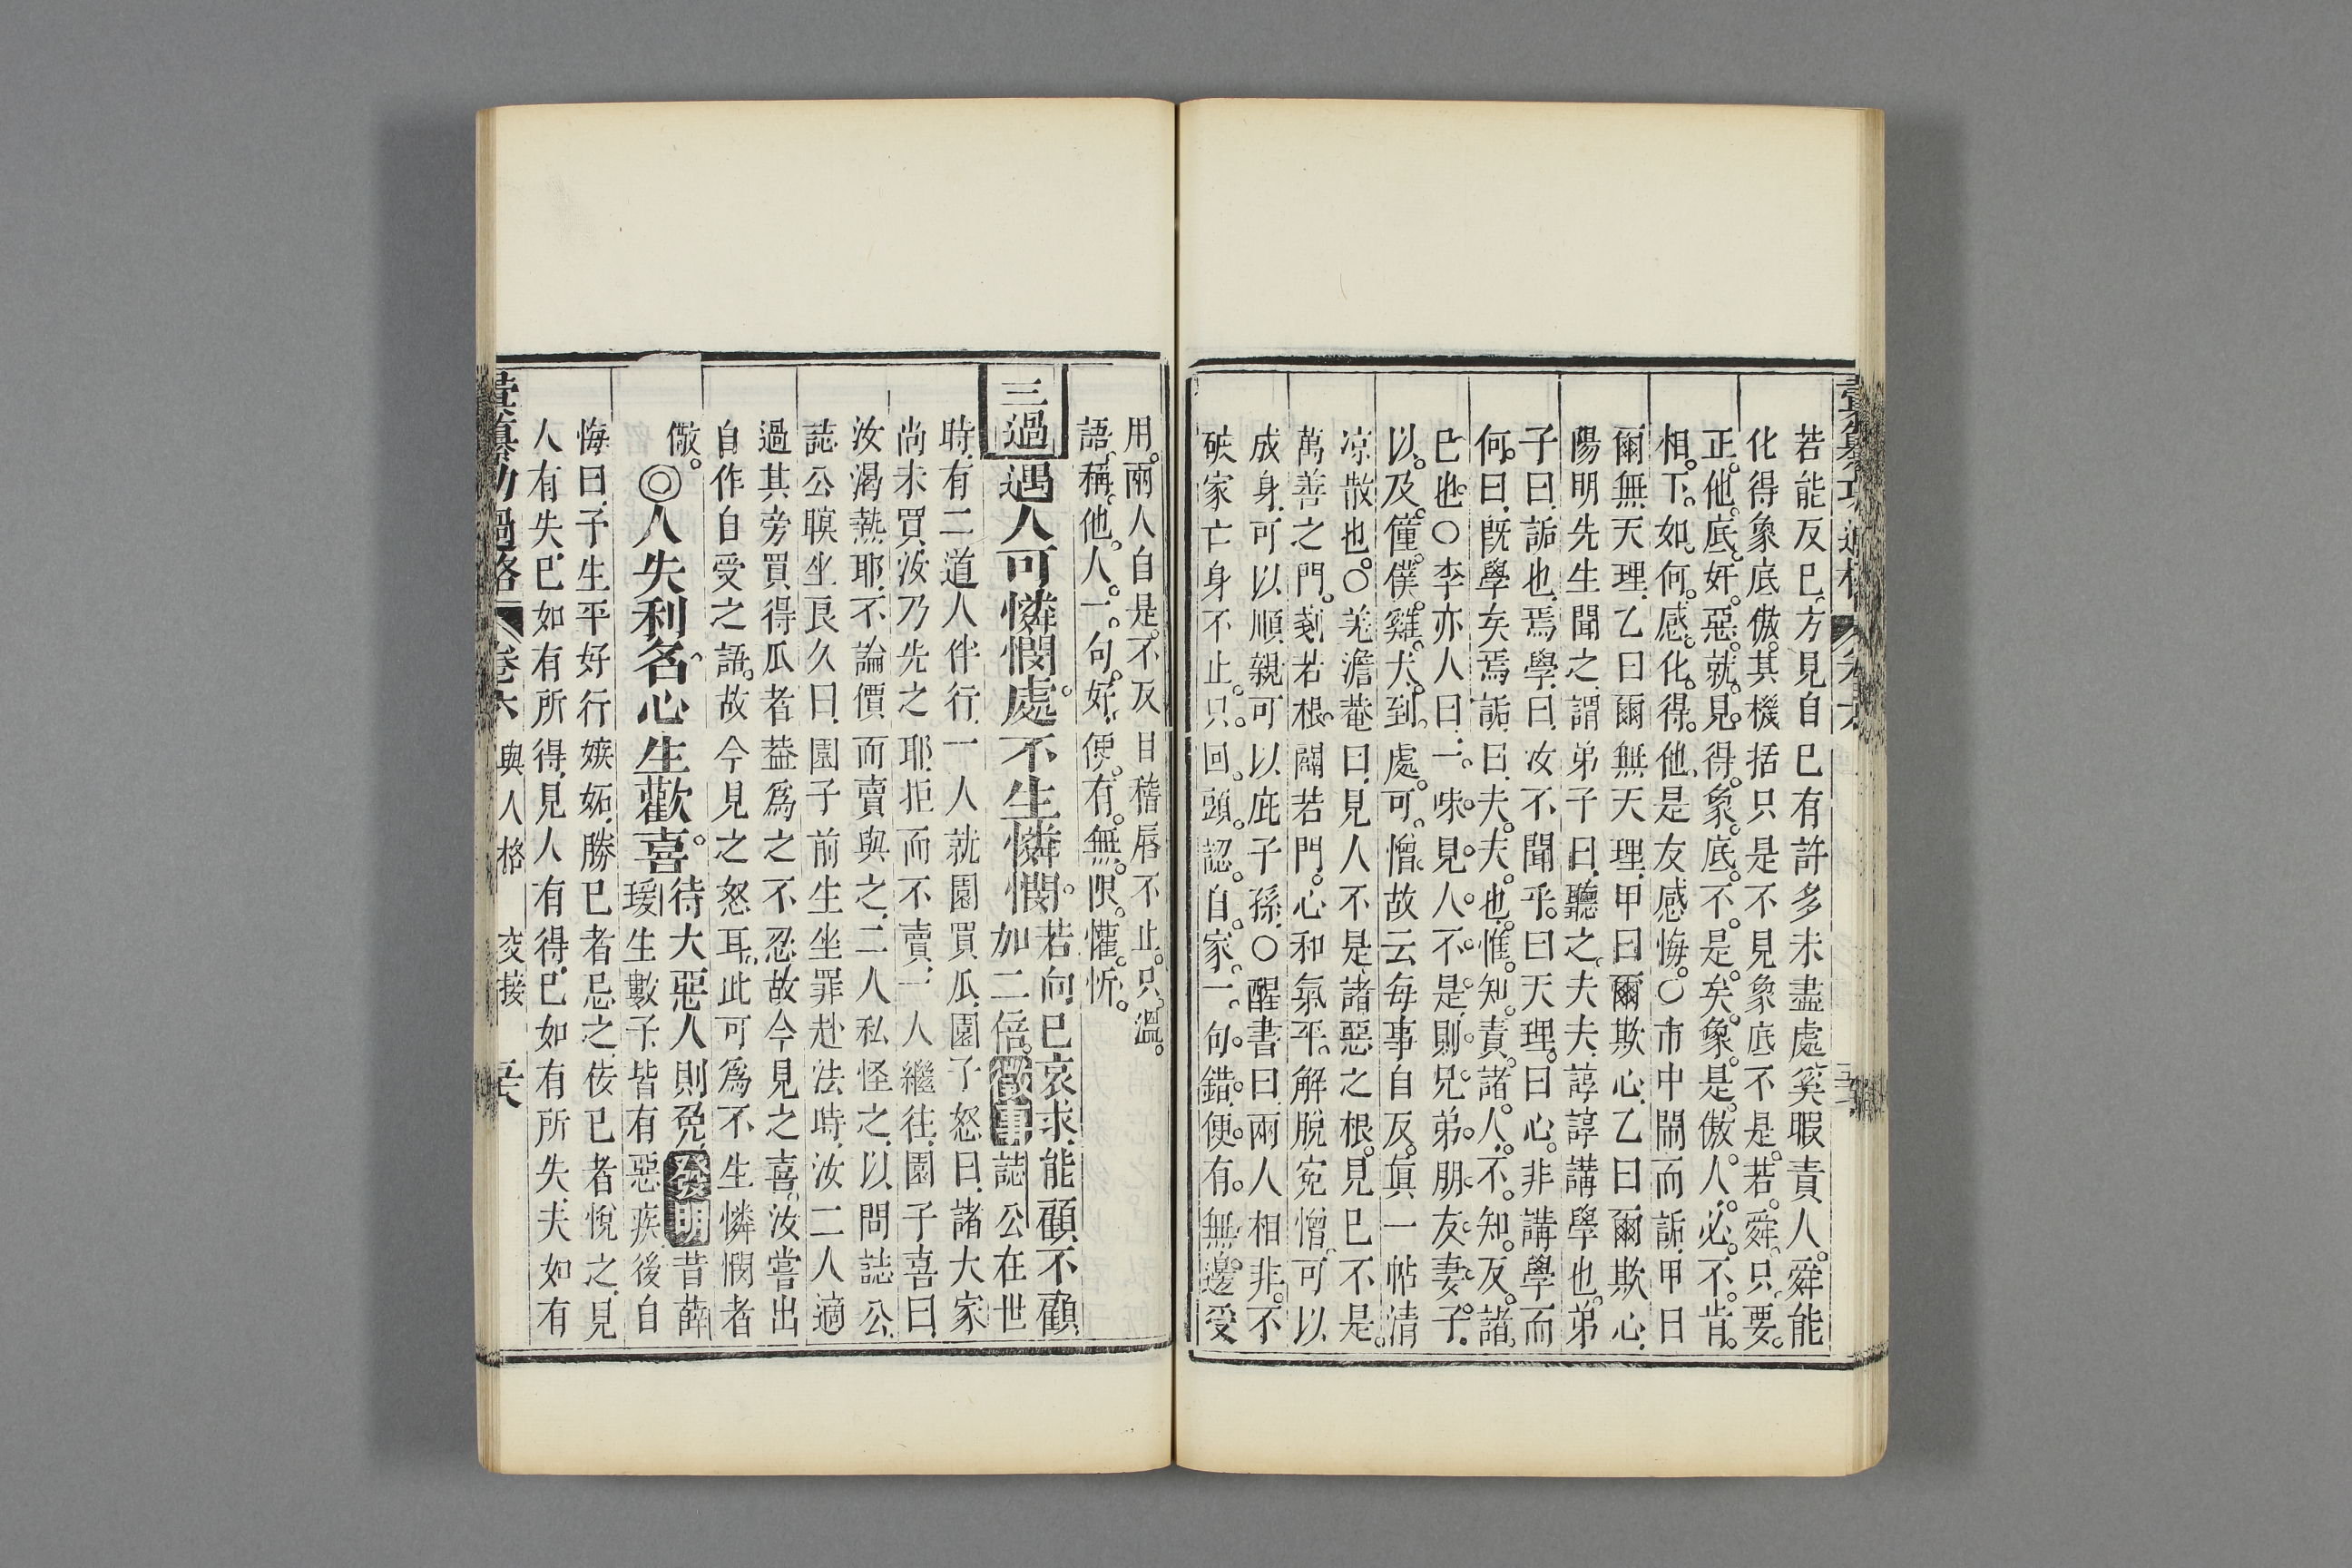 若能反巳方見自巳有許多未盡處奚暇責人舜能
化得象底傲其機括只是不見象底不是若舜只要
正他底奸惡就見得象底不是矣象是傲人必不肯
相下如何感化得他是友感悔○市中鬧而詬甲曰
爾無天理乙曰爾無天理甲曰爾欺心乙曰爾欺心
陽明先生聞之謂弟子曰聽之夫夫諄諄講學也弟
子曰詬也焉學曰汝不聞乎曰天理曰心非講學而
何曰既學矣焉詬曰夫夫也惟知責諸人不知反諸
巳也○李亦人曰一味見人不是則兄弟朋友妻子
以及僮僕雞犬到處可憎故云每事自反眞一帖清
凉散也○羌澹菴曰見人不是諸惡之根見巳不是
萬善之門剗若根闢若門心和氣平解脫寃憎可以
成身可以順親可以庇子孫○醒書曰兩人相非不
破家亡身不止只回頭認自家一句錯便有無邊受
用兩人自是不反目稽唇不止只溫
語稱他人一句好便有無限懽忻
三過 遇人可憐憫處不生憐憫 若向巳哀求能顧不顧
加二倍 徵事 誌公在世
時有二道人伴行一人就園買瓜園子怒曰諸大家
尚未買汝乃先之耶拒而不賣一人繼往園子喜曰
汝渴熱耶不論價而賣與之二人私怪之以問誌公
誌公瞑坐良久曰園子前生坐罪赴法時汝二人適
過其旁買得瓜者葢爲之不忍故今見之喜汝嘗出
自作自受之語故今見之怒耳此可爲不生憐憫者
儆
◎人失利名心生歡喜 待大惡人則免 發明 昔薛
瑗生數子皆有惡疾後自
悔曰予生平好行嫉妬勝巳者忌之佞巳者悅之見
人有失巳如有所得見人有得巳如有所失夫如有
彙纂功過格 卷六 與人格 交接 五六